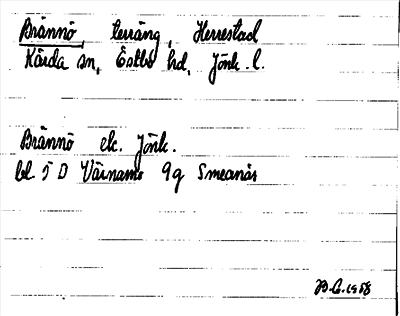 Brännö, terräng, Herrestad
Kärda sn, Östbo hd, Jönk. l.
Brännö ek. Jönk.
bl. 5 D Värnamo 9g Smeanäs
B.G. 1958